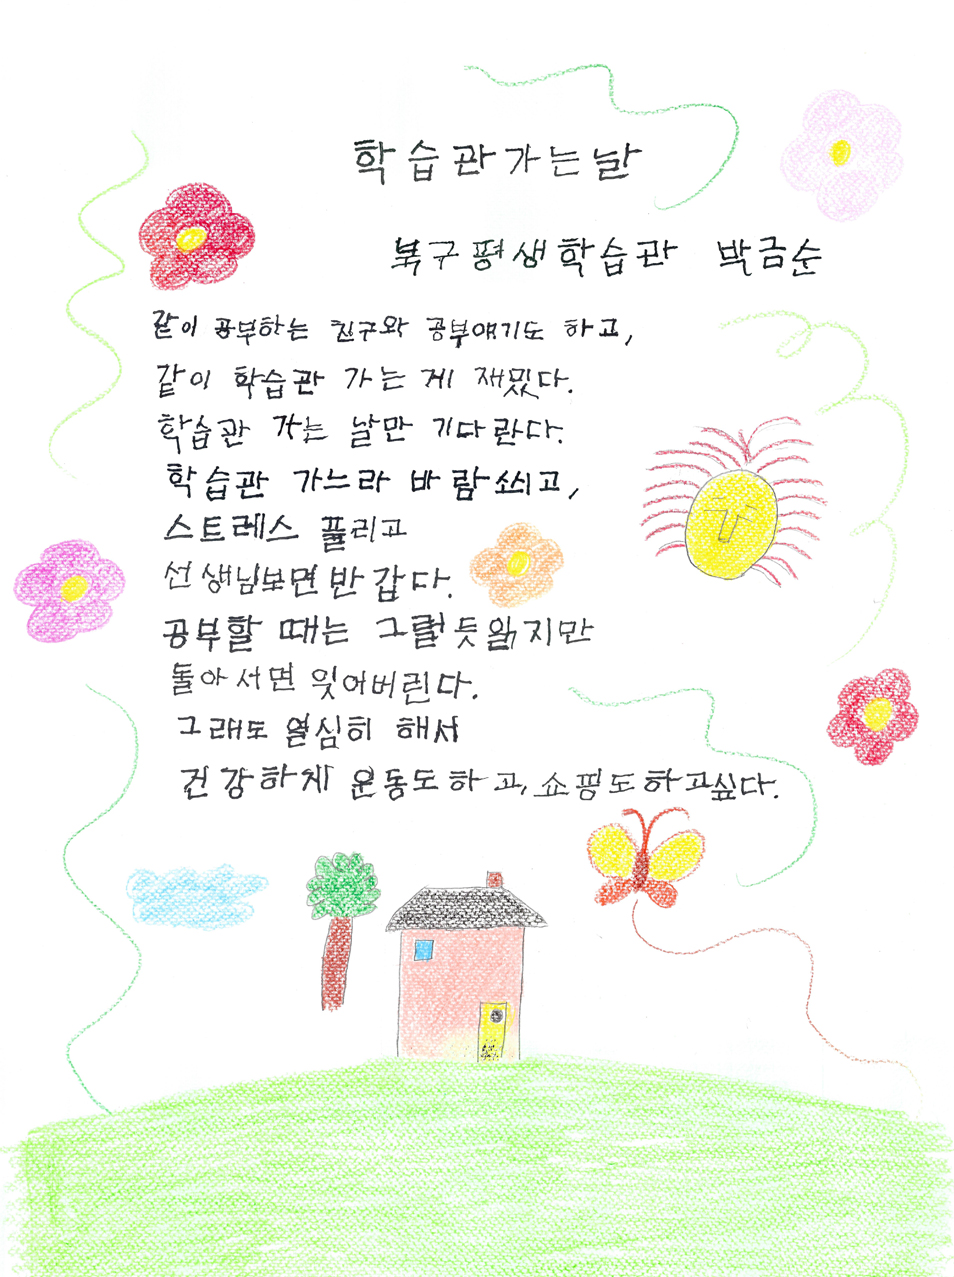 학습관 가는 날
북구평생학습관 박금순
같이 공부하는 친구와 공부얘기도 하고,
같이 학습관 가는 게 재밌다.
학습관 가는 날만 기다린다.
학습관 가느라 바람쐬고,
스트레스 풀리고
선생님보면 반갑다.
공부할 때는 그럴듯 읽지만
돌아서면 잊어버린다.
그래도 열심히 해서
건강하게 운동도하고, 쇼핑도하고싶다.